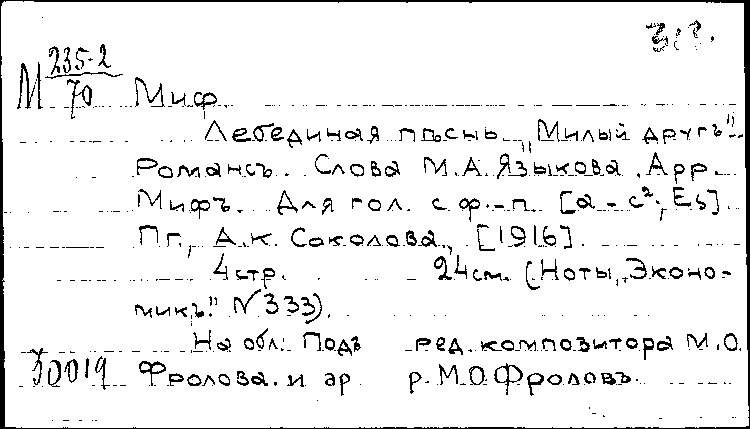 М 235-2/70 Миф
Лебединая пѣснь „Милый другъ"
Романсъ. Слова М.А. Языкова. Арр.
Мифъ. Для гол. с ф.-п. [a - c²; Es]
Пг., А.К. Соколова, [1916].
4 стр. 24 см. (Ноты „Эконо-
микъ" № 333).
На обл: Подъ ред. композитора М.О.
30019 Фролова. и ар р. М.О. Фроловъ.